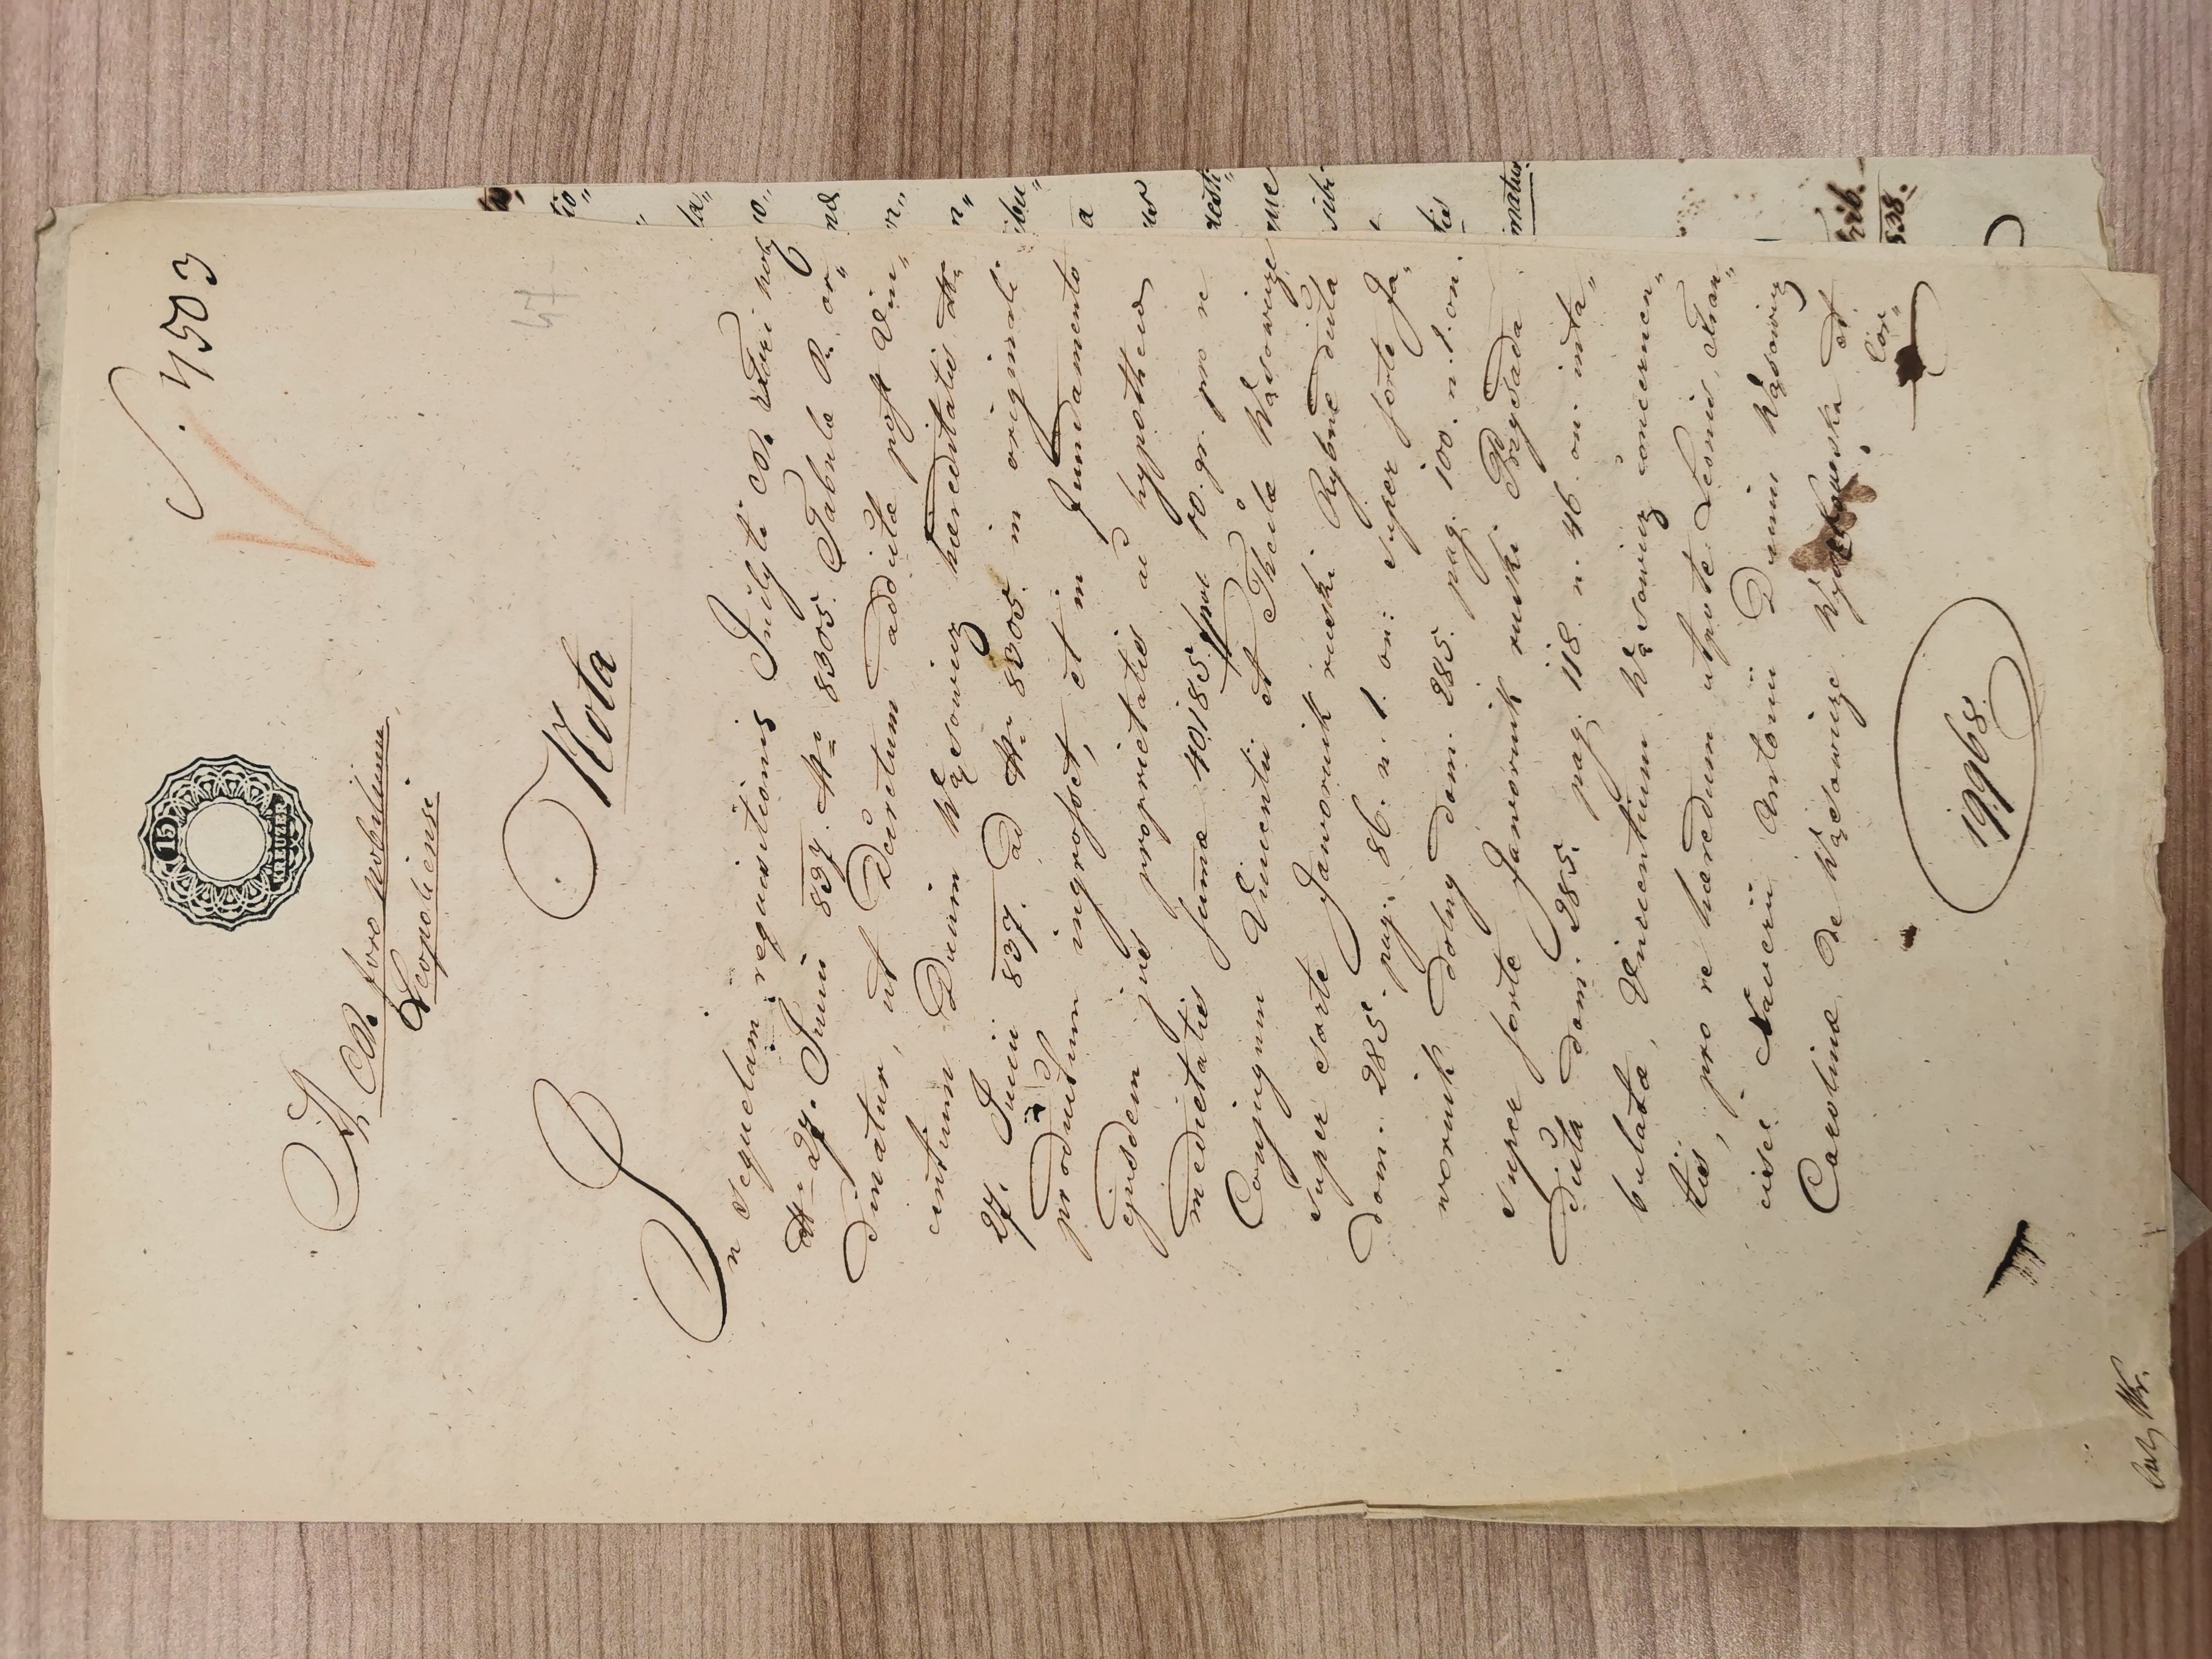 J. 4503
15
KREUZER
C. R. foro nobilium
Leopoliensi
47
Nota
In sequelam requisitionis Inclyti C. R. Fori nob.
dtt 27. Junii 837. N 8305. Tabula R. or„
dinatur, ut Decretum additæ post Vin„
centium Dunin Wąsowicz hæreditatis dtt
27. Junii 837. ad N 8305. in originali
productum ingrosset, et in fundamento
ejusdem jus proprietatis ac hypothecæ
medietatis sumæ 40185 fpol 10. gr. pro re
Conjugum Vincentii et Theclæ Wąsowicze
super sorte Jawornik ruski Rybne dicta
dom. 285. pag. 86. n. 1. on: super sorte Ja„
wornik dolny dom. 285. pag. 100. n. 1. on.
super sorte Jawornik ruski Przysada
dicta dom. 285. pag. 118 n. 46. on. inta„
bulata, Vincentium Wąsowicz concernen„
tis, pro re hæredum utpote Leonis, Fran„
cisci Xaverii Antonii Dunin Wąsowicz
Carolinæ de Wąsowicze et
Con„
19968.
tis